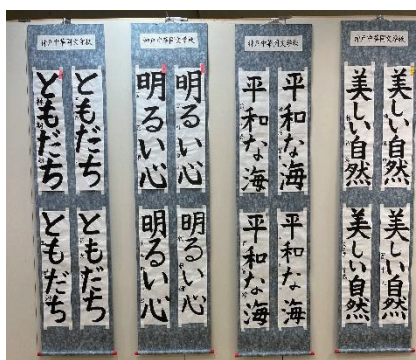 神戸中華同文学校
ともだち
ともだち
ともだち
ともだち
神戸中華同文学校
明るい心
明るい心
明るい心
明るい心
神戸中華同文学校
平和な海
平和な海
平和な海
平和な海
神戸中華同文学校
美しい自然
美しい自然
美しい自然
美しい自然